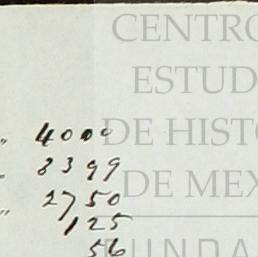 CENTRO
ESTUD
DE HIST
DE MEX
FUNDA
" 4000
" 8399
" 2750
125
56